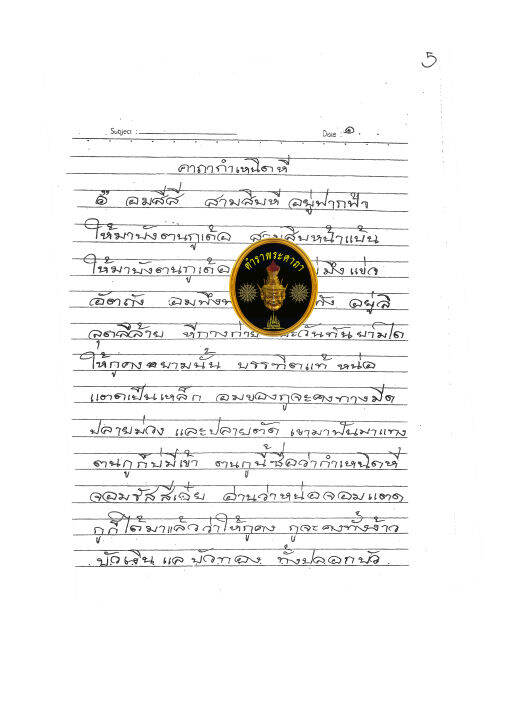 5
Subject :
Date : ๑
คาถากำเหนิดหี
๖ อมสีสี่ สามสิบหี อยู่ฟากฟ้า
ให้มาบังตนกูเด้อ สามสิบหน้าแป้น
ให้มาบังตนกูเด้อ มึง แข่ว
ตำราพระคาถา
อัตถัง อมพึง อยู่ลี
ลุตสีส้าย หีกางก่าย ตะวันทันยามใด
ให้กูคงยามนั้น บรรฑิตแท้ หน่อ
แตดเป็นเหล็ก อมของกูจะคงทางมีด
ปลายม่วง และปลายตัด เขามาฟันมาแทง
ตนกูก็บ่มีเข้า ตนกูนี้ชื่อว่ากำเหนิดหี
จอมขัสสีเฉ่ย อ่านว่าหน่อจอมแตด
กูก็ได้มาแล้วว่าให้กูคง กูจะคงทั้งง้าว
บัวเงิน แล บัวทอง ทั้งปลอกบัว